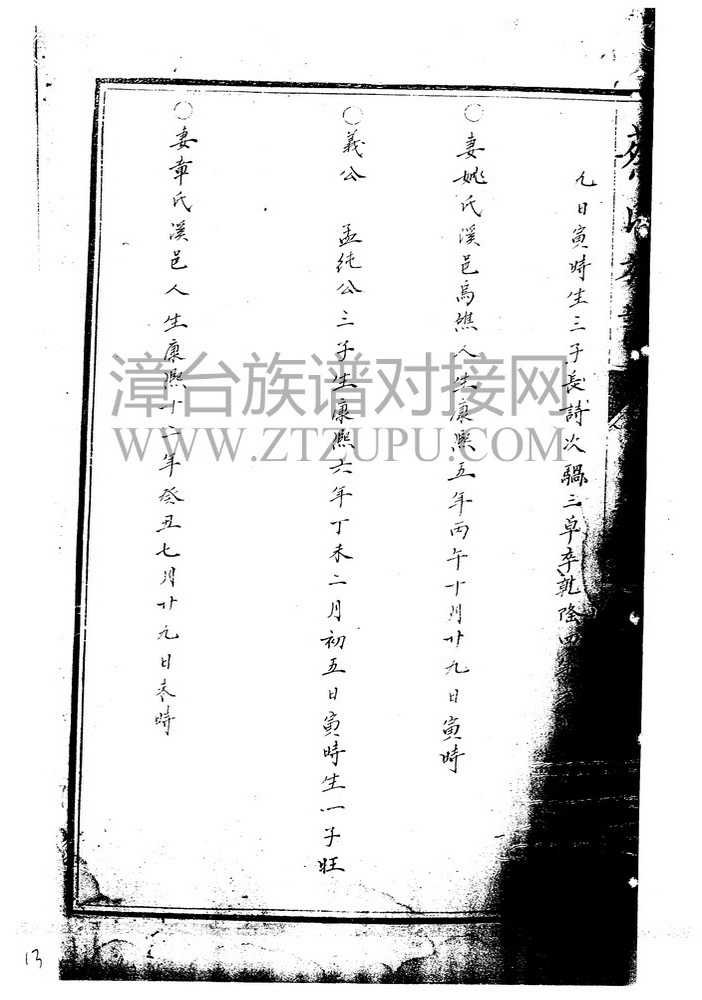 九日寅時生三子長詩次騧三草卒乾隆四
妻姚氏溪邑高熊人生康熙五年丙午十月廿九日寅時
義公 孟純公三子生康熙六年丁未二月初五日寅時生一子旺
妻章氏溪邑人生康熙十二年癸丑七月廿九日未時
漳台族谱对接网
WWW.ZTZUPU.COM
13